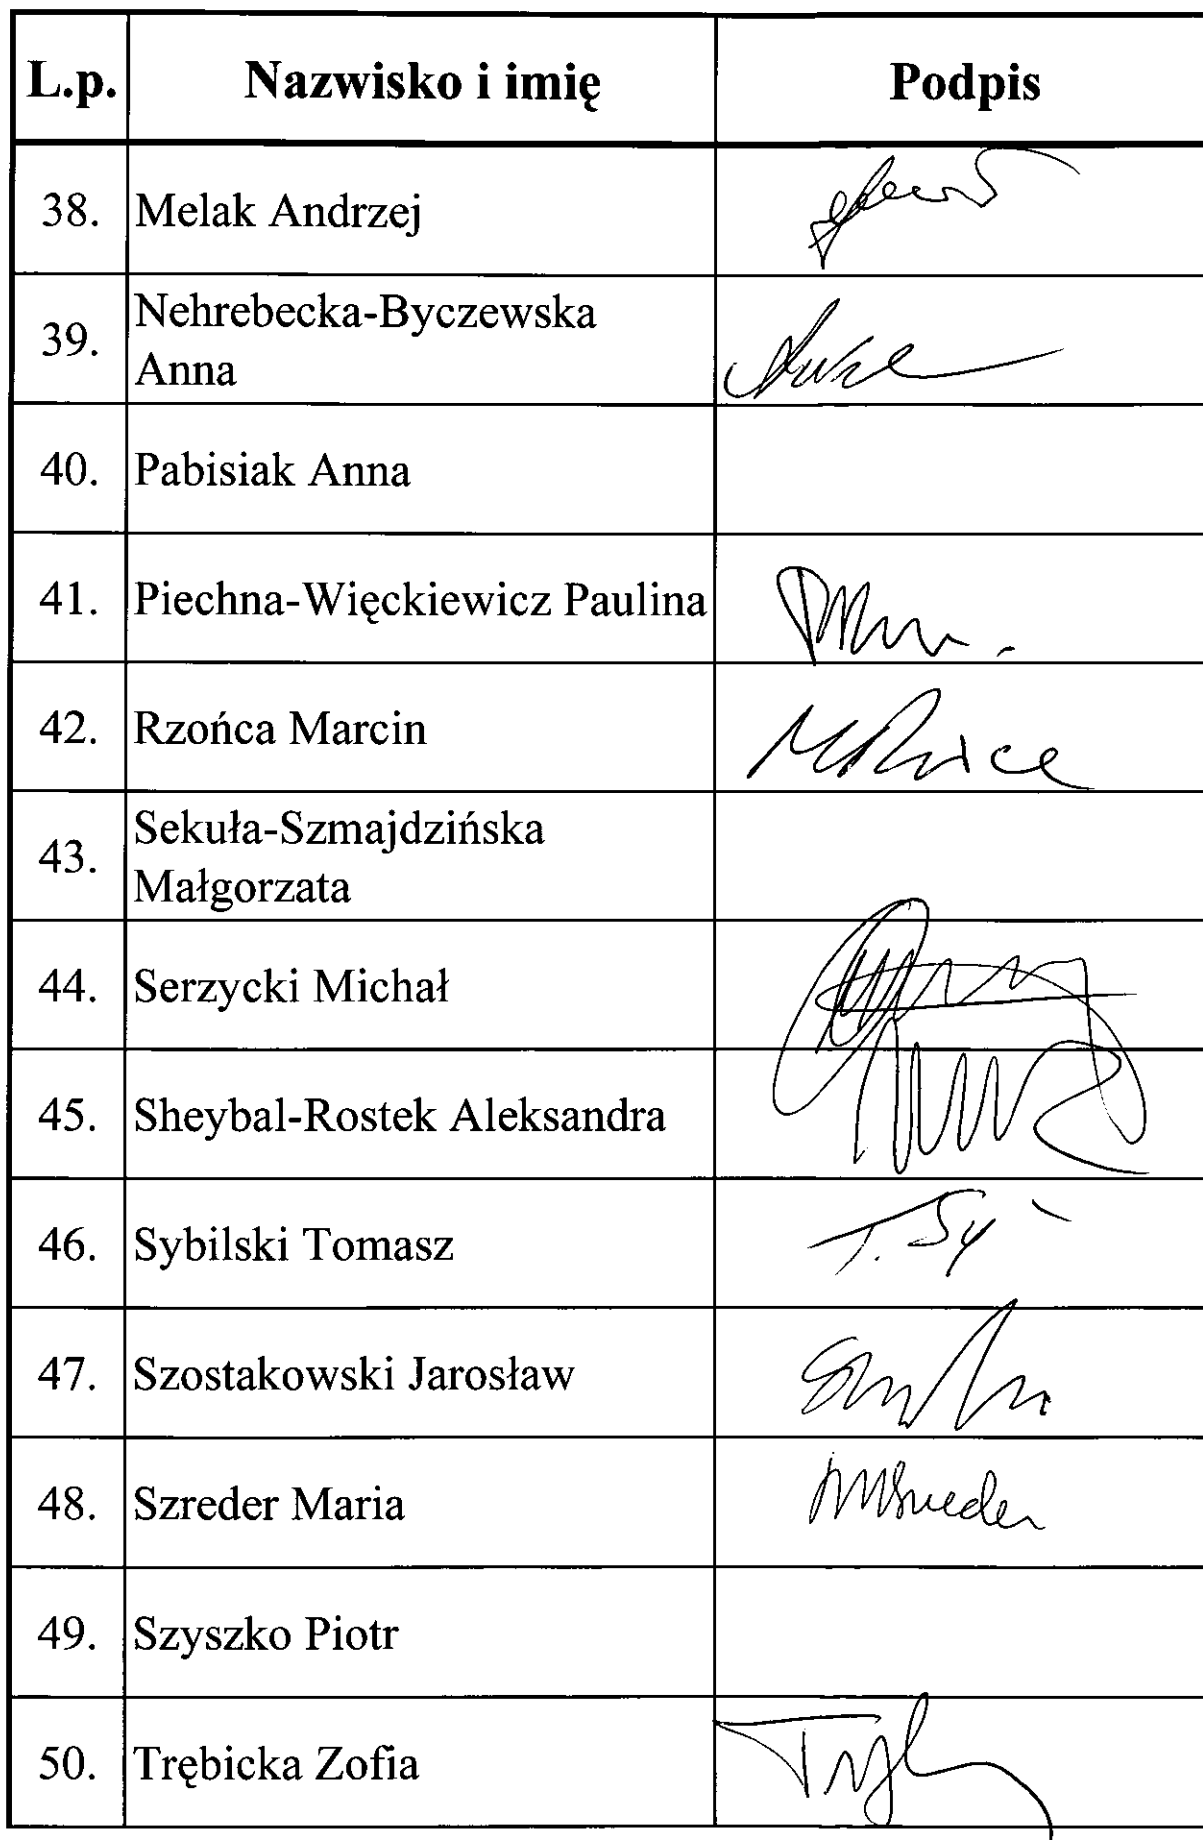 L.p. Nazwisko i imię Podpis
38. Melak Andrzej
39. Nehrebecka-Byczewska
Anna
40. Pabisiak Anna
41. Piechna-Więckiewicz Paulina
42. Rzońca Marcin
43. Sekuła-Szmajdzińska
Małgorzata
44. Serzycki Michał
45. Sheybal-Rostek Aleksandra
46. Sybilski Tomasz T. Sy
47. Szostakowski Jarosław
48. Szreder Maria MSzreder
49. Szyszko Piotr
50. Trębicka Zofia